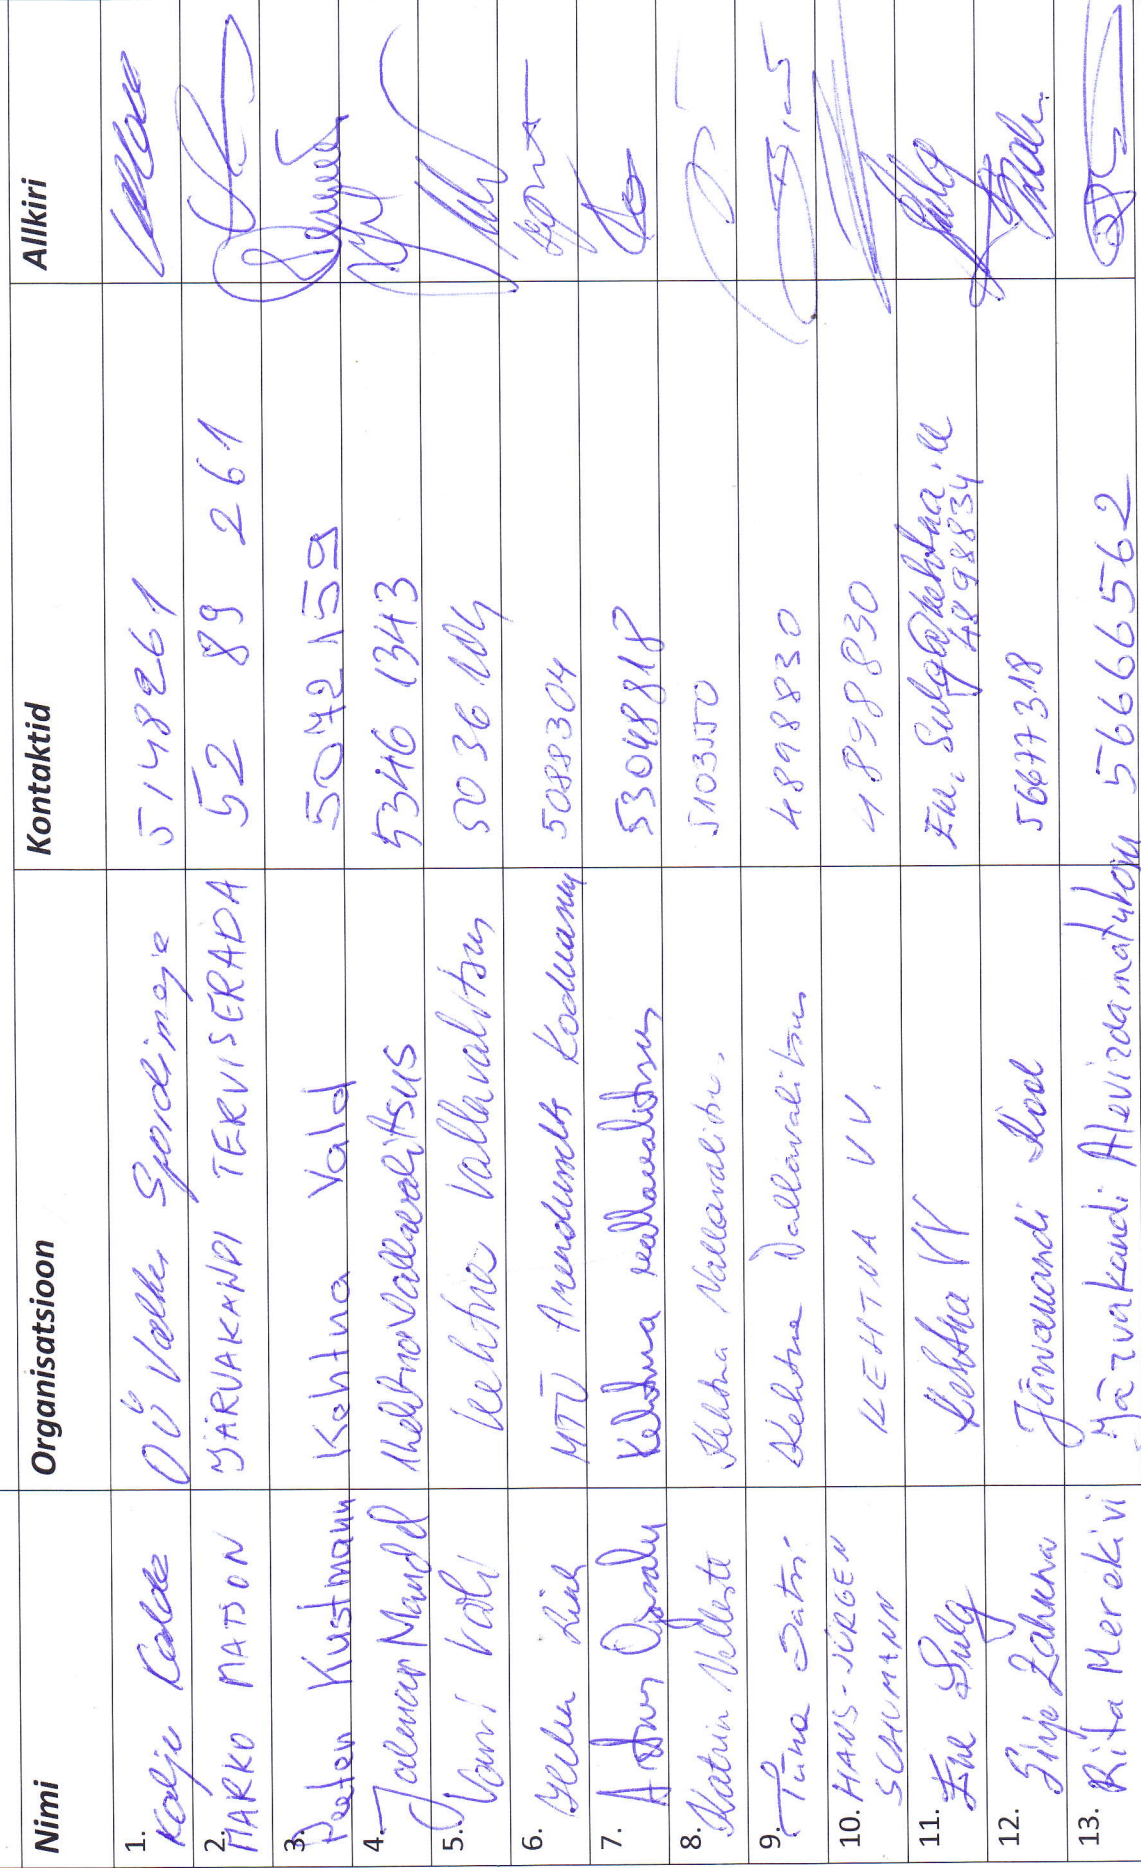 Nimi Organisatsioon Kontaktid Allkiri
1. Kalju Kalda OÜ Valtu Spordimaja 5148261
2. MARKO MATSON JÄRVAKANDI TERVISERADA 52 89 261
3. Peeter Kustmann Kehtna Vald 5072159
4. Jalmar Mandel Kehtna Vallavalitsus 5346 1343
5. Kehtna Vallavalitsus 5036104
6. MTÜ Arendusselts Koduaseme 5088304
7. Kehtna vallavalitsus 53048818
8. Katrin Velleste Kehtna Vallavalitsus. 5103550
9. Tiina Kehtna Vallavalitsus 489830
10. HANS-JÜRGEN KEHTNA VV. 4898830
SCHUMANN
11. Ene Sulg Kehtna VV Ene.Sulg@kehtna.ee
4898834
12. Järvakandi Kool 56677318
13. Rita Merekivi Järvakandi Aleviraamatukogu 56666562